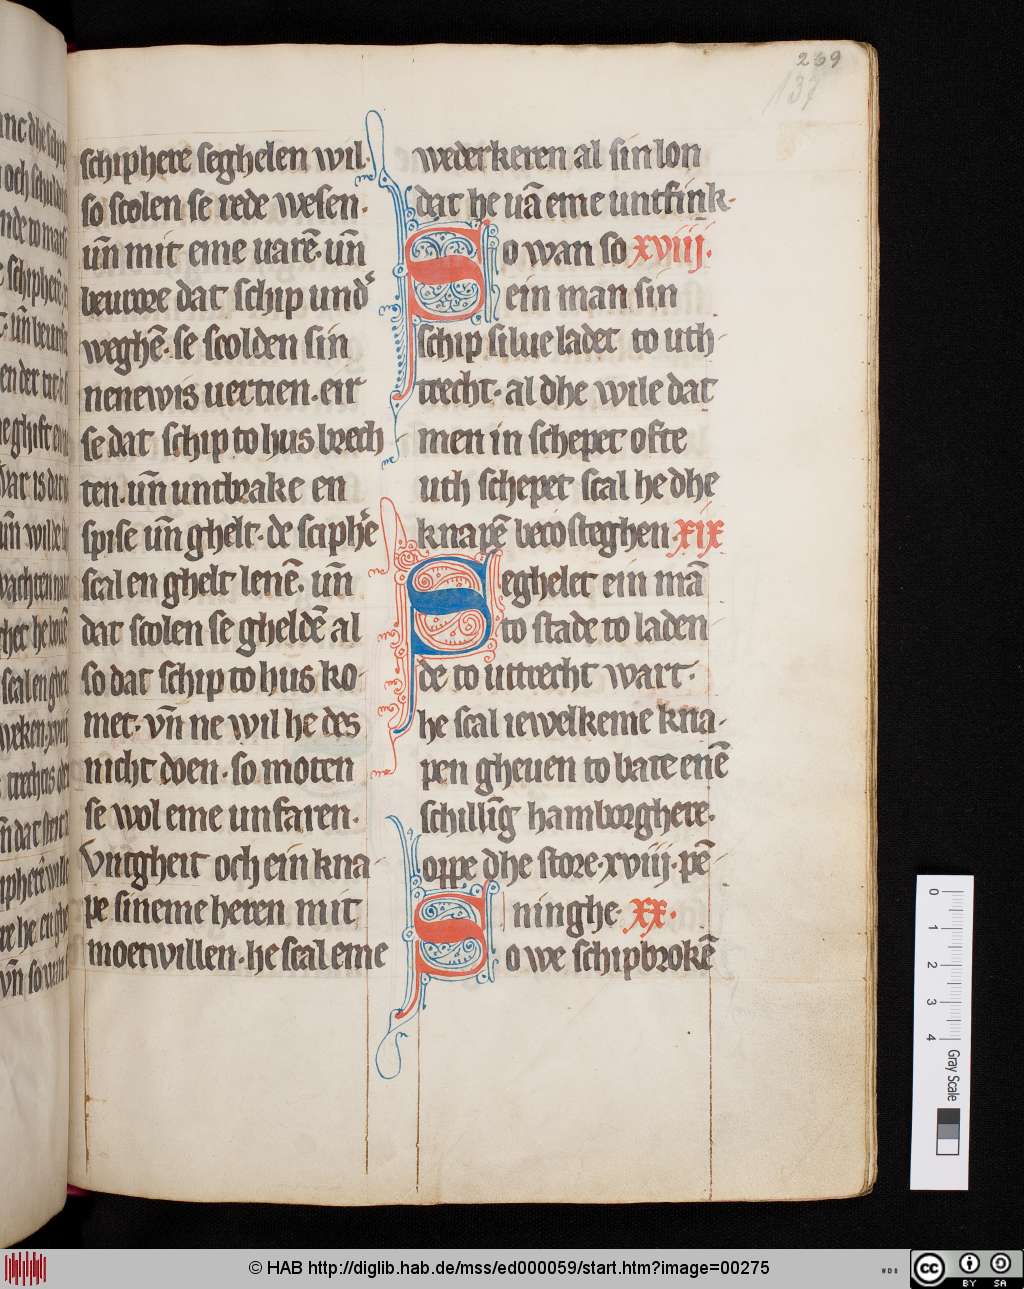 239
137
schiphere seghelen wil.
so scolen se rede wesen.
un̄ mit eme uarē. un̄
bewore dat schip und͛
weghē. se scolden sin
nenewis uertien. eir
se dat schip to hus brech
ten. un̄ untbrake en
spise un̄ ghelt. de sciphe͛
scal en ghelt lenē. un̄
dat scolen se gheldē al
so dat schip to hus ko-
met. vn̄ ne wil he des
nicht doen. so moten
se wol eme unfaren.
Untgheit och ein kna-
pe sineme heren mit
moetwillen. he scal eme
wederkeren al sin lon
dat he uā eme untfink.
So wan so xviij.
ein man sin
schip silue ladet to uth-
trecht. al dhe wile dat
men in schepet ofte
uth schepet scal he dhe
knapē becosteghen. xix
Seghelet ein mā
to stade to laden-
de to uttrecht wart.
he scal iewelkeme kna-
pen gheuen to bate enē
schilli̅g hamborghere.
oppe dhe store. xviij. pē-
ninghe. xx.
So we schipbrokē
0
1
2
3
4
Gray Scale
© HAB http://diglib.hab.de/mss/ed000059/start.htm?image=00275
WDB
cc
BY SA